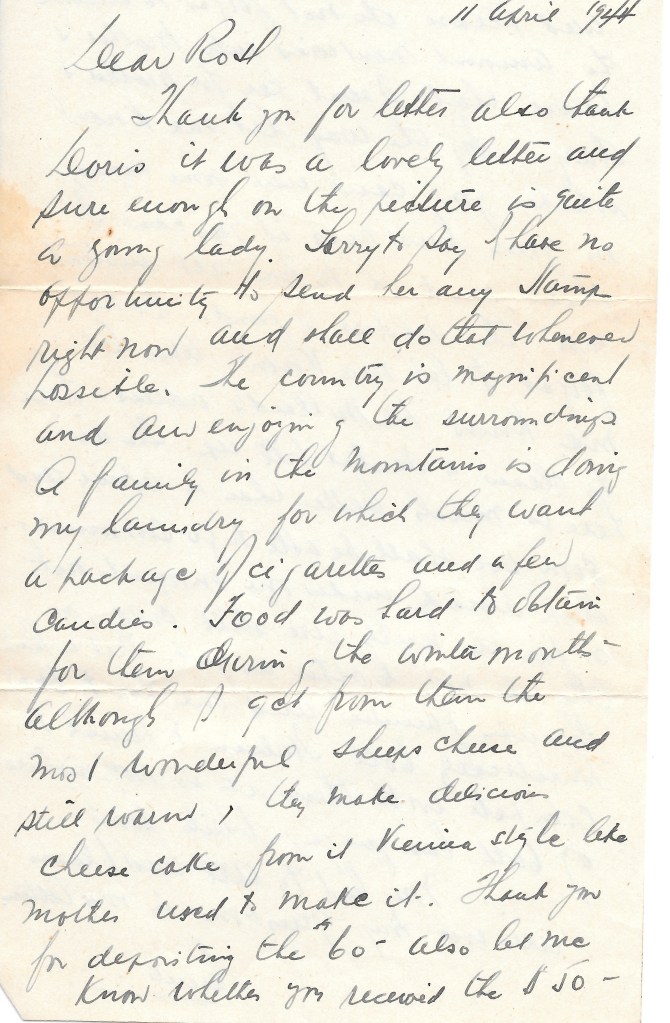 11 April 1944
Dear Rosl
Thank you for letter also thank
Doris it was a lovely letter and
sure enough on the picture is quite
a young lady. Sorry to say I have no
opportunity to send her any Stamps
right now and shall do that whenever
possible. The country is magnificent
and am enjoying the surroundings
A family in the mountains is doing
my laundry for which they want
a package of cigarettes and a few
candies. Food was hard to obtain
for them during the winter months
although I get from them the
most wonderful sheeps cheese and
still warm, they make delicious
cheese cake from it Vienna style like
mother used to make it. Thank you
for depositing the $60- also let me
know whether you received the $50-